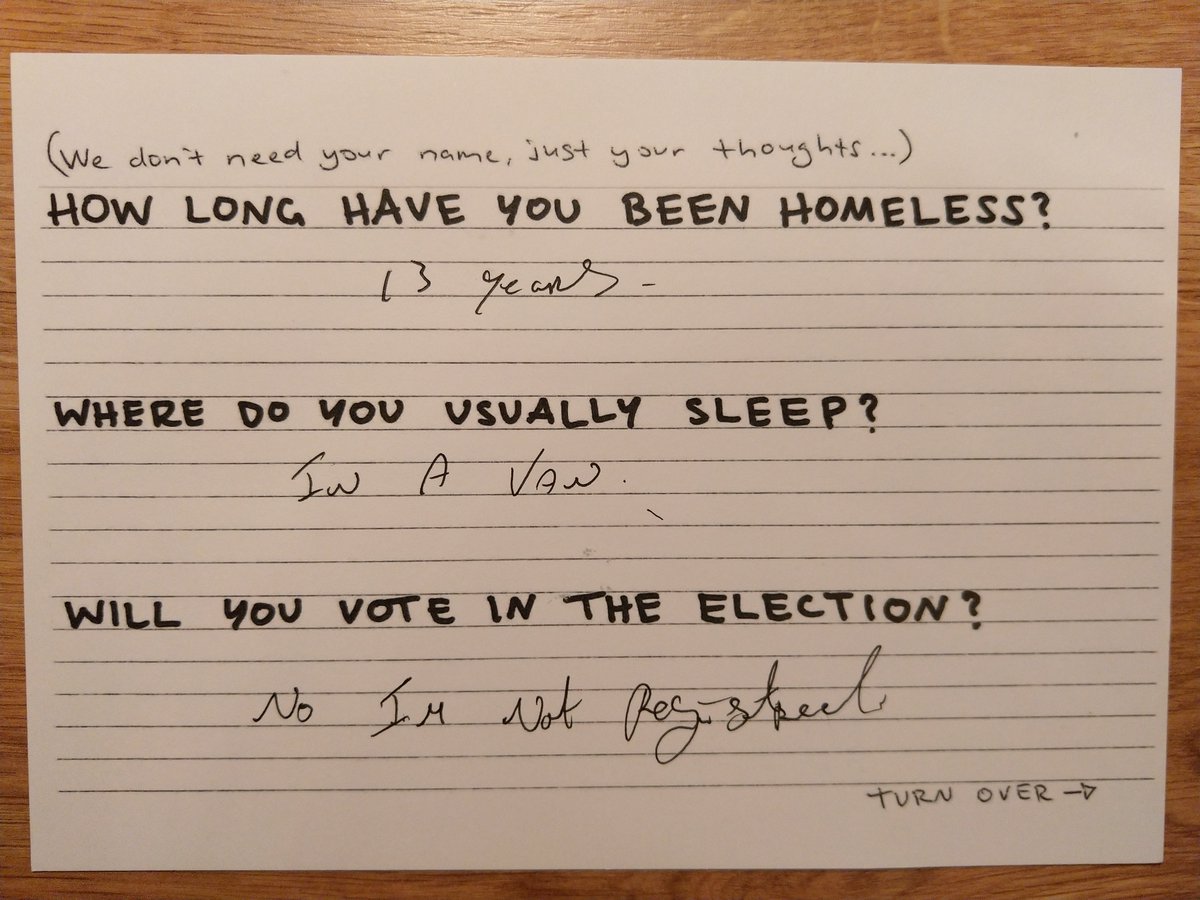 (We don't need your name, just your thoughts...)
HOW LONG HAVE YOU BEEN HOMELESS?
13 years -
WHERE DO YOU USUALLY SLEEP?
IN A VAN.
WILL YOU VOTE IN THE ELECTION?
No IM Not Registred
TURN OVER →